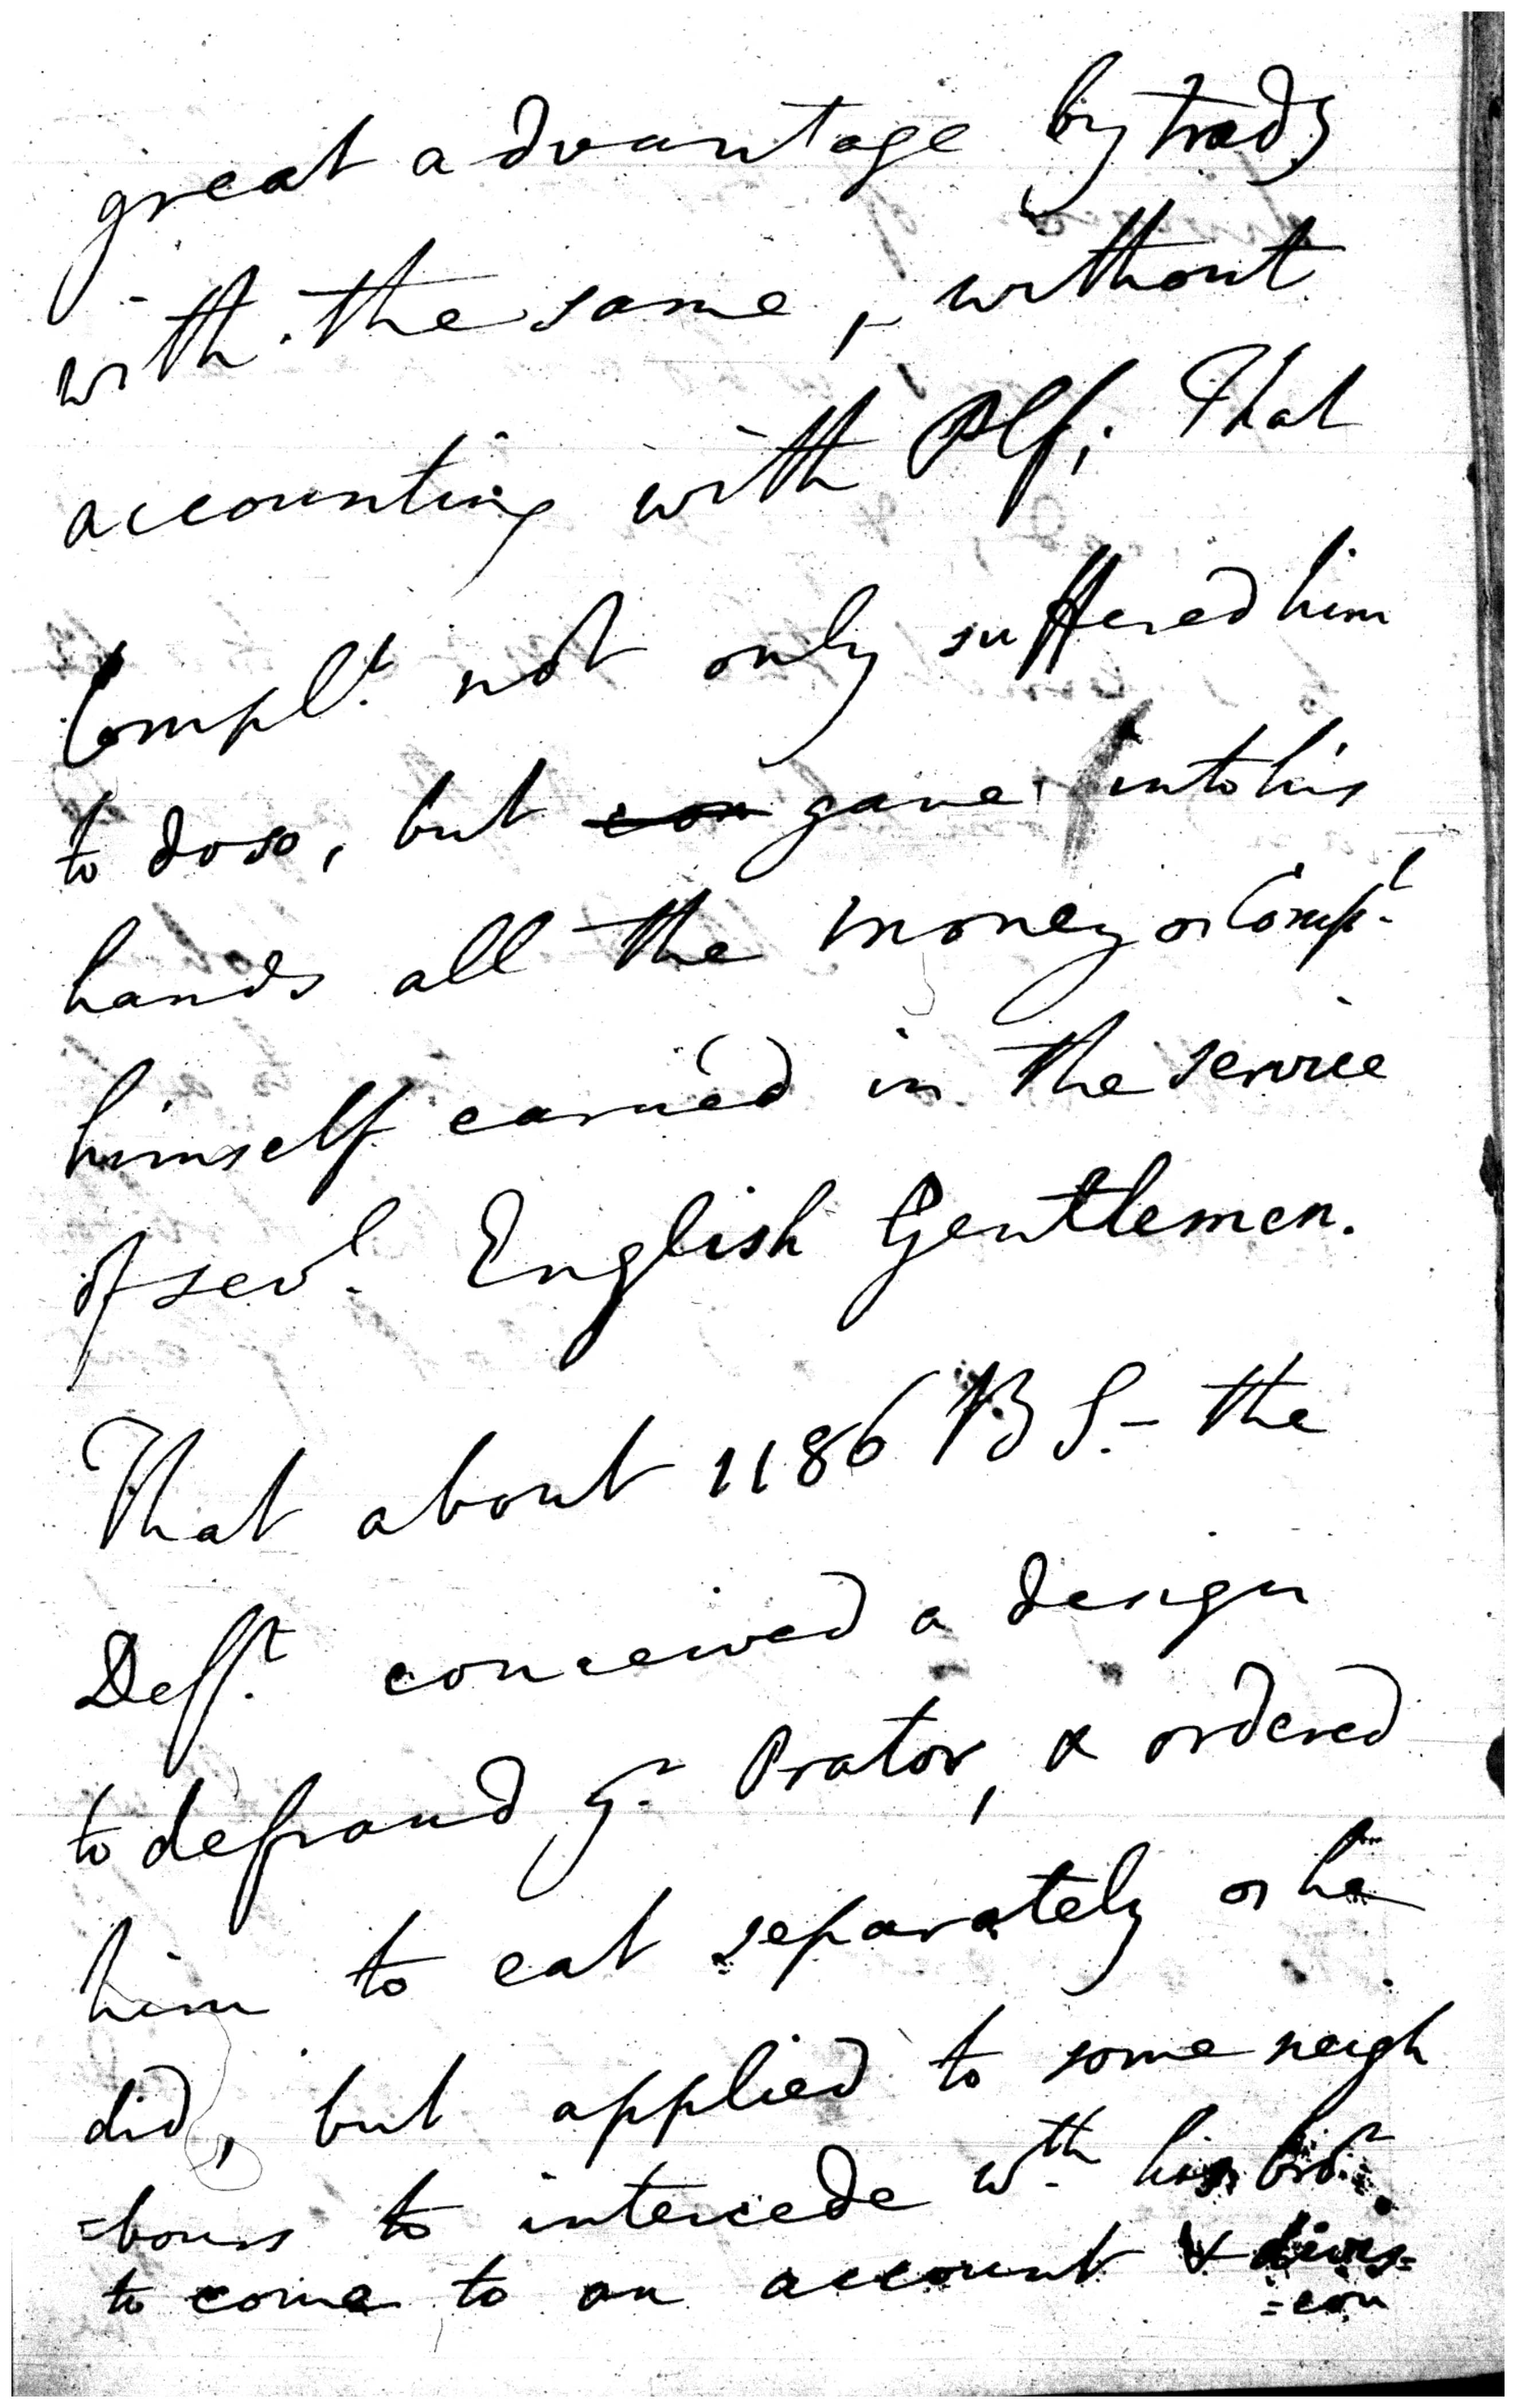 great advantage by tradg
with the same, without
accounting with Plf; That
Complt. not only suffered him
to do so, but con gave into his
hands all the money wch Complt
himself earned in the service
of sevl. English Gentlemen.
That about 1186 BS. - the
Defft. conceived a design
to defraud yr. Orator, & ordered
him to eat separately wch he
did, but applied to some neigh
=bours to intercede wth his bror.
to come to an account & divis=
=ion